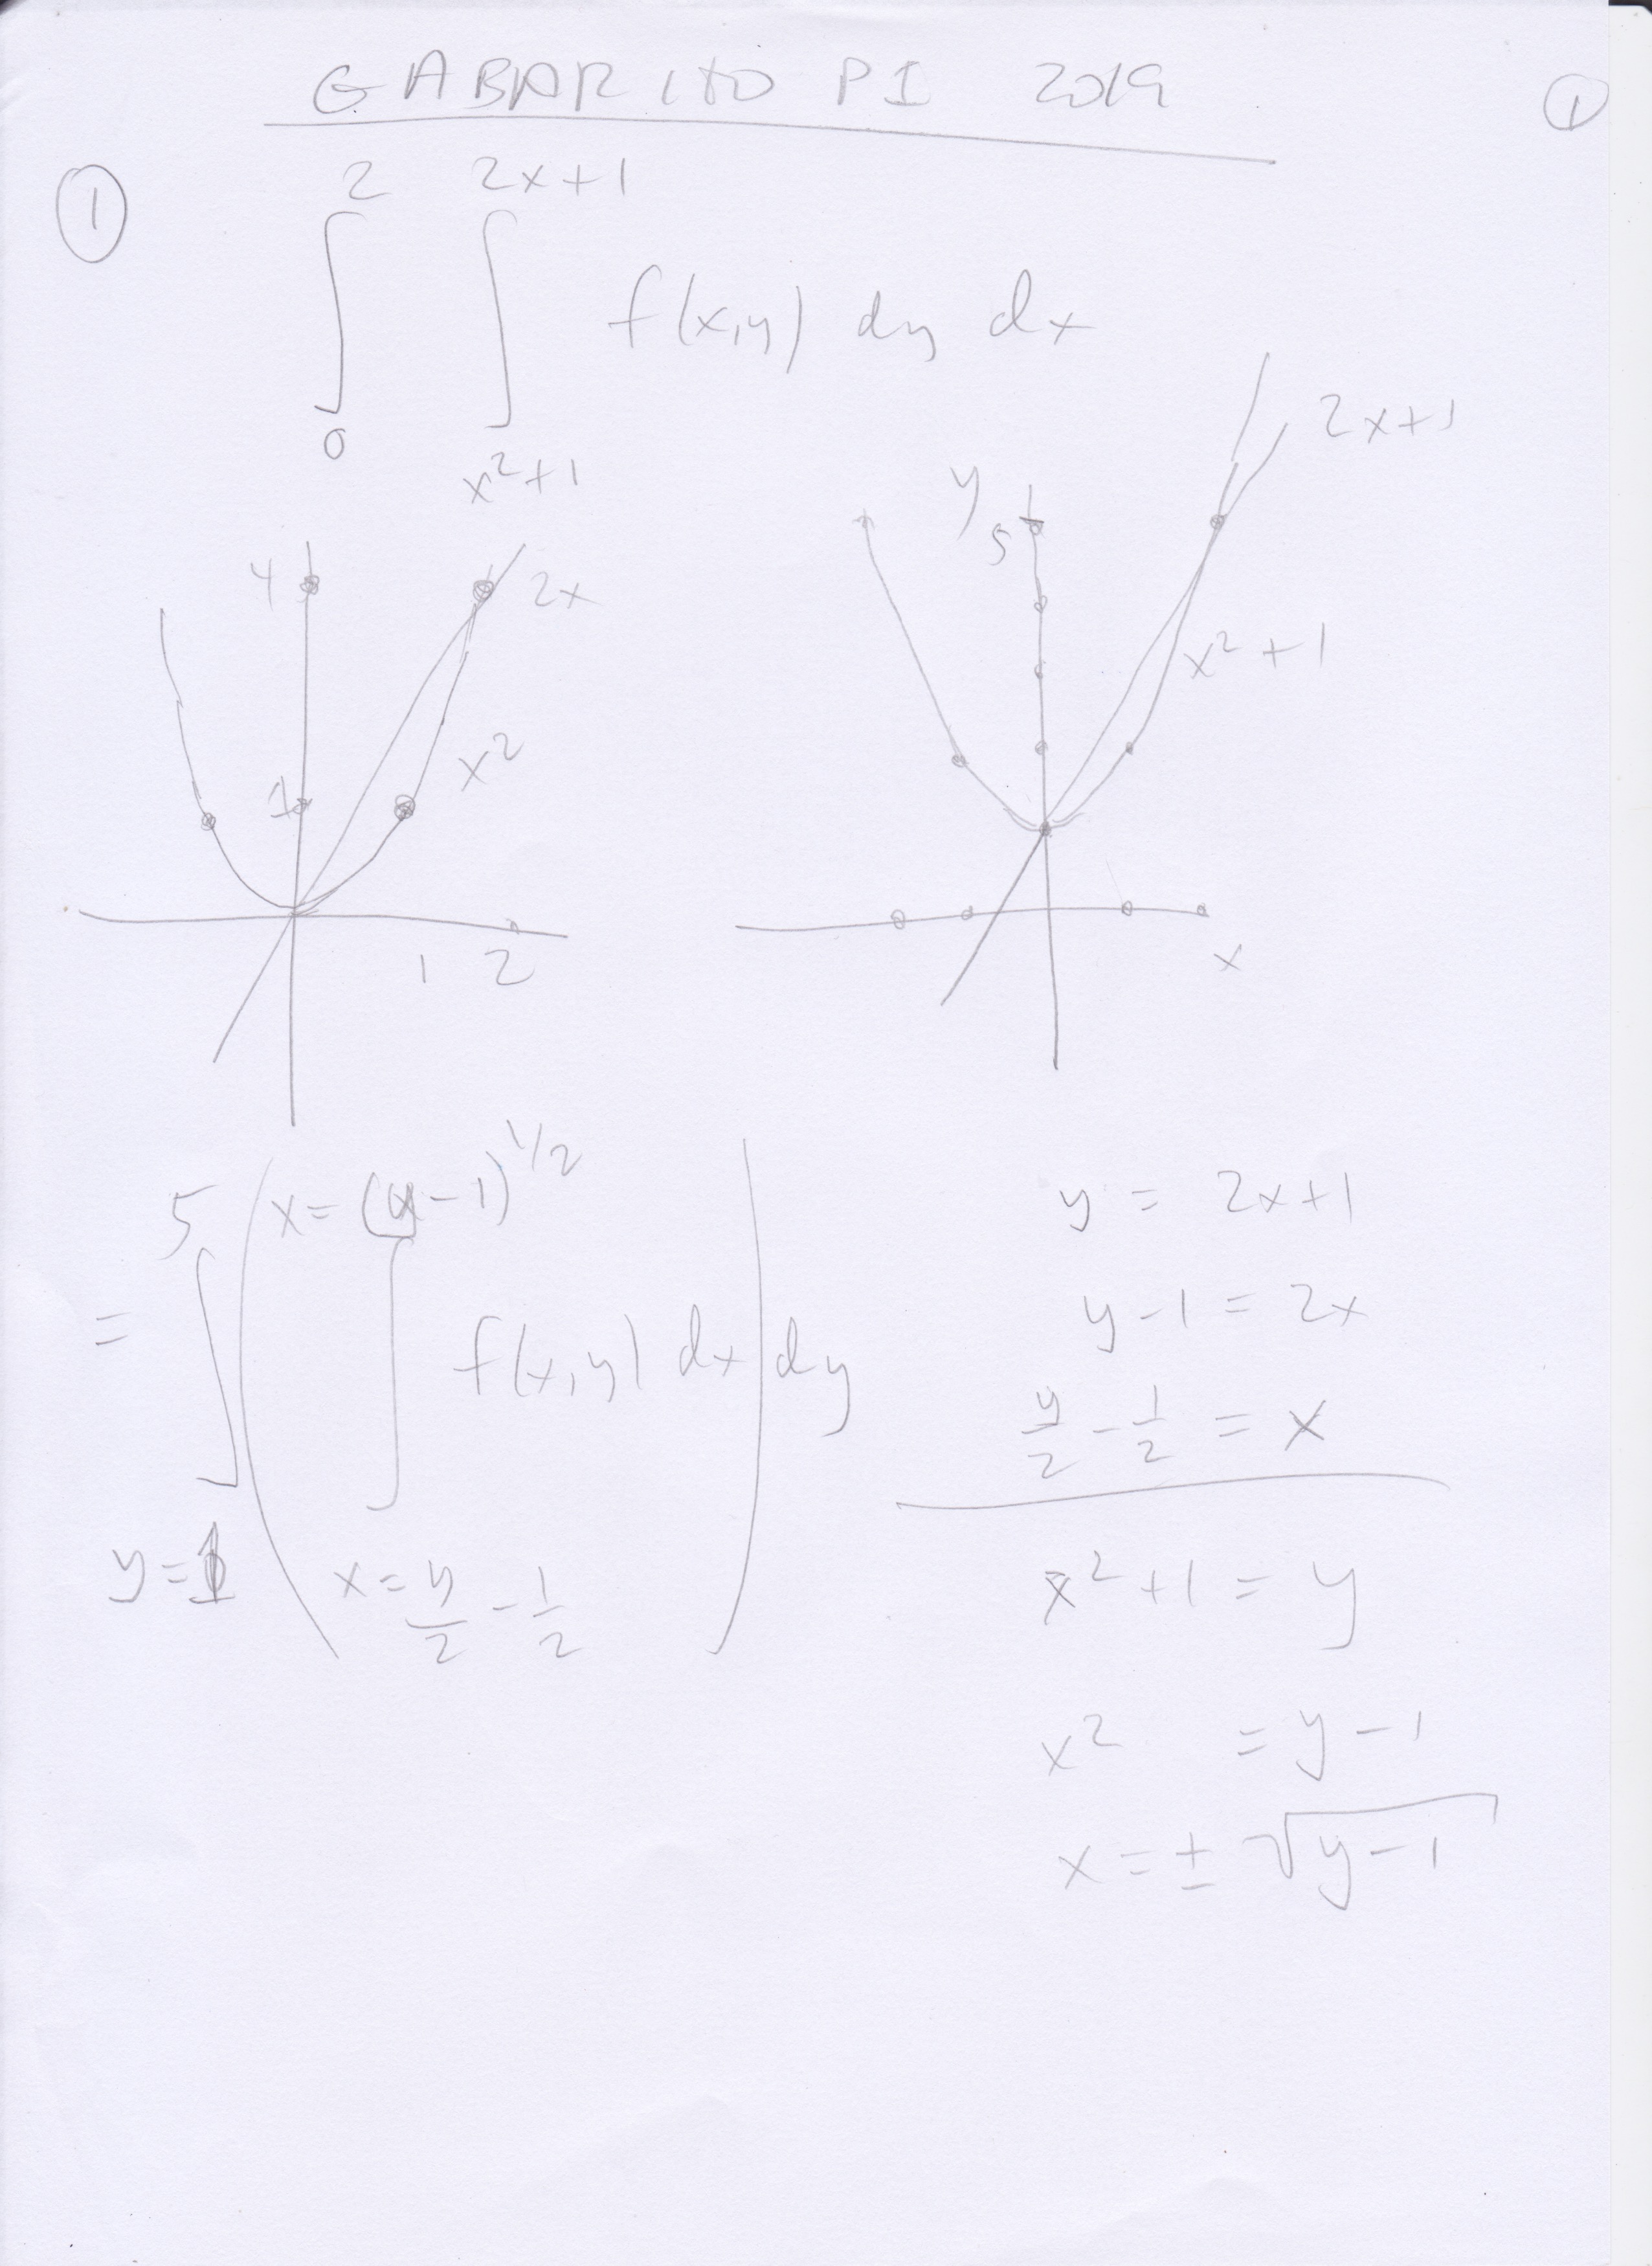 GABARITO PI 2019
①
①
∫_0^2 ∫_{x²+1}^{2x+1} f(x,y) dy dx
4
2x
1
x²
1 2
y
5
2x+1
x²+1
x
= ∫_{y=1}^{5} ( ∫_{x=y/2-1/2}^{x=(y-1)^{1/2}} f(x,y) dx ) dy
y = 2x+1
y-1 = 2x
y/2 - 1/2 = x
x²+1 = y
x² = y-1
x = ± √(y-1)